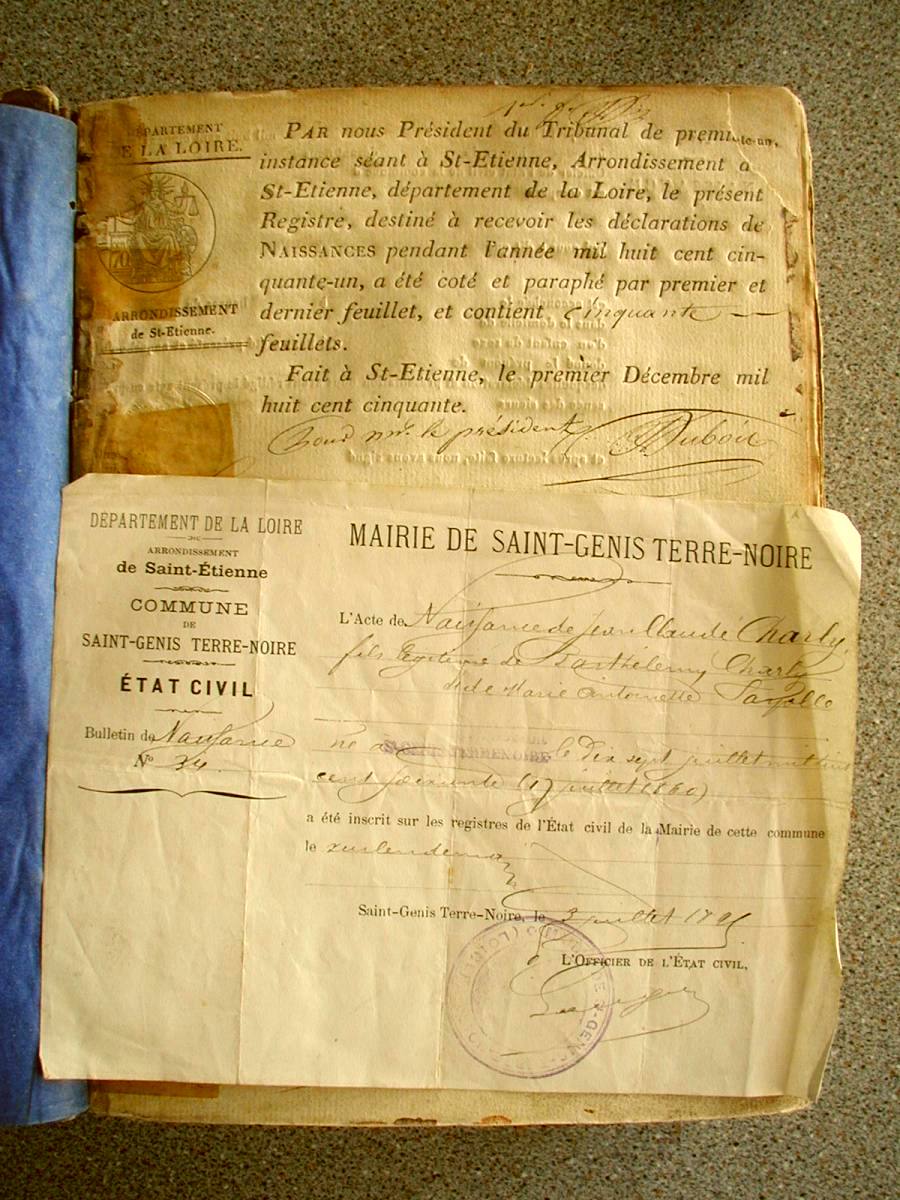 DÉPARTEMENT
DE LA LOIRE.
ARRONDISSEMENT
de St-Etienne.
PAR nous Président du Tribunal de première
instance séant à St-Etienne, Arrondissement
St-Etienne, département de la Loire, le présent
Registre, destiné à recevoir les déclarations de
NAISSANCES pendant l'année mil huit cent cin-
quante-un, a été coté et paraphé par premier et
dernier feuillet, et contient cinquante
feuillets.
Fait à St-Etienne, le premier Décembre mil
huit cent cinquante.
Pour Mr. le président
Dubois
DÉPARTEMENT DE LA LOIRE
ARRONDISSEMENT
de Saint-Étienne
COMMUNE
DE
SAINT-GENIS TERRE-NOIRE
ÉTAT CIVIL
Bulletin de Naissance
N° 34
MAIRIE DE SAINT-GENIS TERRE-NOIRE
L'Acte de Naissance de Jean Claude Charly
fils légitime de Barthélemy Charly
et de Marie Antoinette Fayolle
né à St GENIS TERRENOIRE le dix sept juillet mil huit
cent soixante (17 juillet 1860)
a été inscrit sur les registres de l'État civil de la Mairie de cette commune
le surlendemain
Saint-Genis Terre-Noire, le 3 juillet
L'OFFICIER DE L'ÉTAT CIVIL,